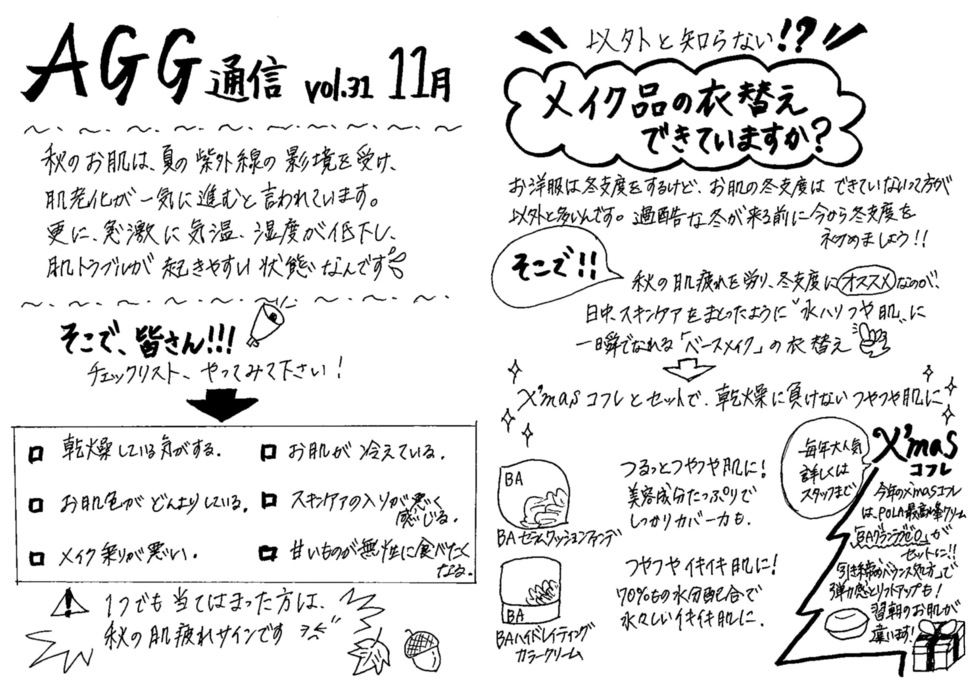 AGG通信 vol.31 11月
秋のお肌は、夏の紫外線の影境を受け、
肌老化が一気に進むと言われています。
更に、急激に気温、湿度が低下し、
肌トラブルが起きやすい状態なんです
そこで、皆さん!!!
チェックリスト、やってみて下さい!
乾燥している気がする。
お肌が冷えている。
お肌色がどんよりしている。
スキンケアの入りが悪く
感じる。
メイク乗りが悪い。
甘いものが無性に食べたく
なる。
1つでも当てはまった方は、
秋の肌疲れサインです
以外と知らない!?
メイク品の衣替え
できていますか?
お洋服は冬支度をするけど、お肌の冬支度はできていないって方が
以外と多いんです。過酷な冬が来る前に今から冬支度を
初めましょう!!
そこで!!
秋の肌疲れを労り、冬支度にオススメなのが、
日中、スキンケアをまとったように"水ハリつや肌"に
一瞬でなれる「ベースメイク」の衣替え
X'masコフレとセットで、乾燥に負けないつやつや肌に
BA
BAセラムクッションファンデ
つるっとつやつや肌に!
美容成分たっぷりで
しっかりカバー力も。
BA
BAハイドレイティング
カラークリーム
つやつやイキイキ肌に!
70%もの水分配合で
水々しいイキイキ肌に。
毎年大人気
詳しくは
スタッフまで
X'mas
コフレ
今年のX'masコフレ
は、POLA最高峰クリーム
「BAグランラグゼO」が
セットに!!
「引き締めバランス処方」で
弾力感とリフトアップも!
翌朝のお肌が
違います!